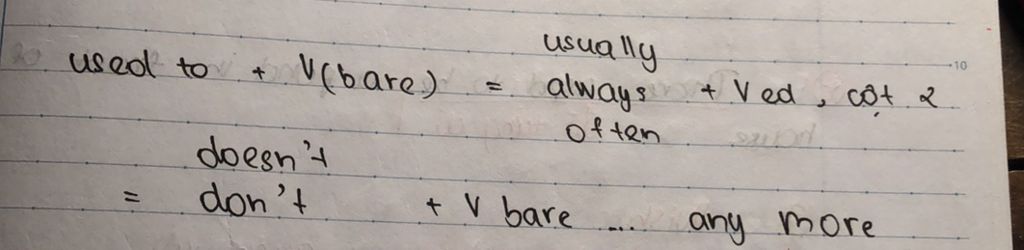 usually
used to + V(bare) = always + Ved, cột 2
often
doesn't
= don't + V bare ... any more